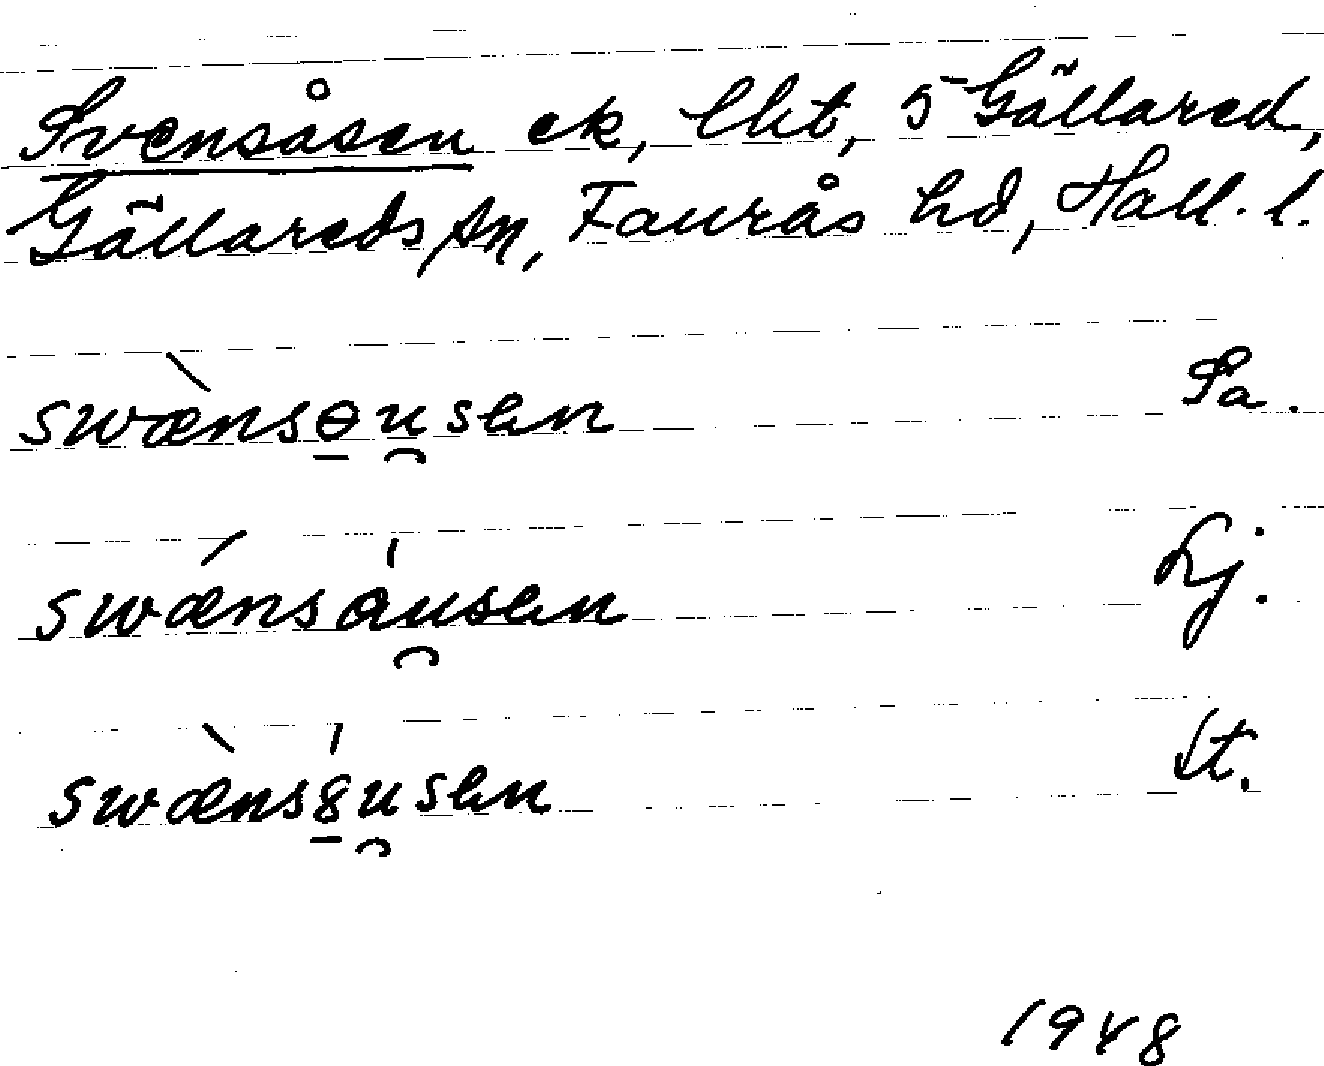 Svensåsen ek, lht, 5 Gällared,
Gällareds sn, Faurås hd, Hall. l.
swæ̀nsɵ̱u̯sen Sa.
swǽnsɑ́u̯sen Lj.
swæ̀ns8̱́u̯sen St.
1948